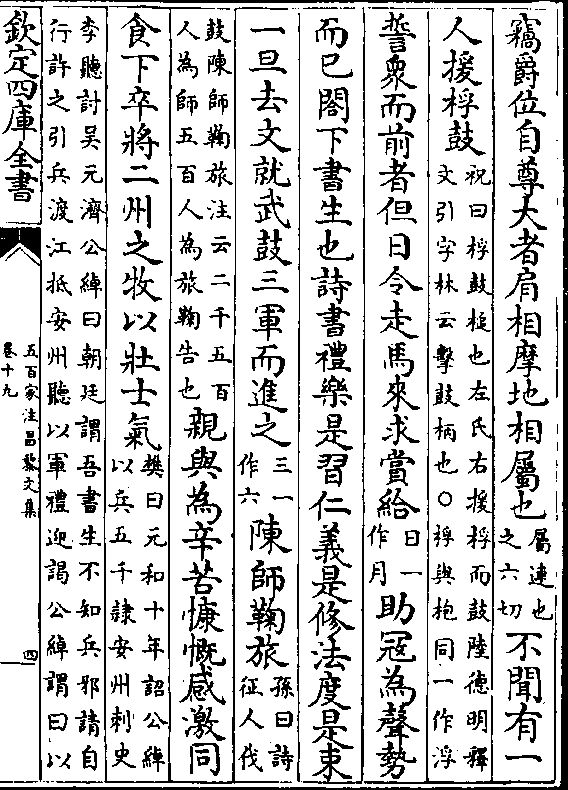 竊爵位自尊大者肩相摩地相屬也屬連也之六切不聞有一
人援桴鼓祝曰桴鼓槌也左氏右援桴而鼓陸德明釋文引字林云擊鼓柄也○桴與枹同一作浮
誓衆而前者但日令走馬來求賞給日一作月助寇為聲勢
而已閣下書生也詩書禮樂是習仁義是修法度是束
一旦去文就武鼓三軍而進之三一作六陳師鞠旅孫曰詩征人伐
鼓陳師鞠旅注云二千五百人為師五百人為旅鞠告也親與為辛苦慷慨感激同
食下卒將二州之牧以壯士氣樊曰元和十年詔公綽以兵五千隸安州刺史
李聽討吳元濟公綽曰朝廷謂吾書生不知兵邪請自行許之引兵渡江抵安州聽以軍禮迎謁公綽謂曰以
欽定四庫全書
五百家注昌黎文集
卷十九
四